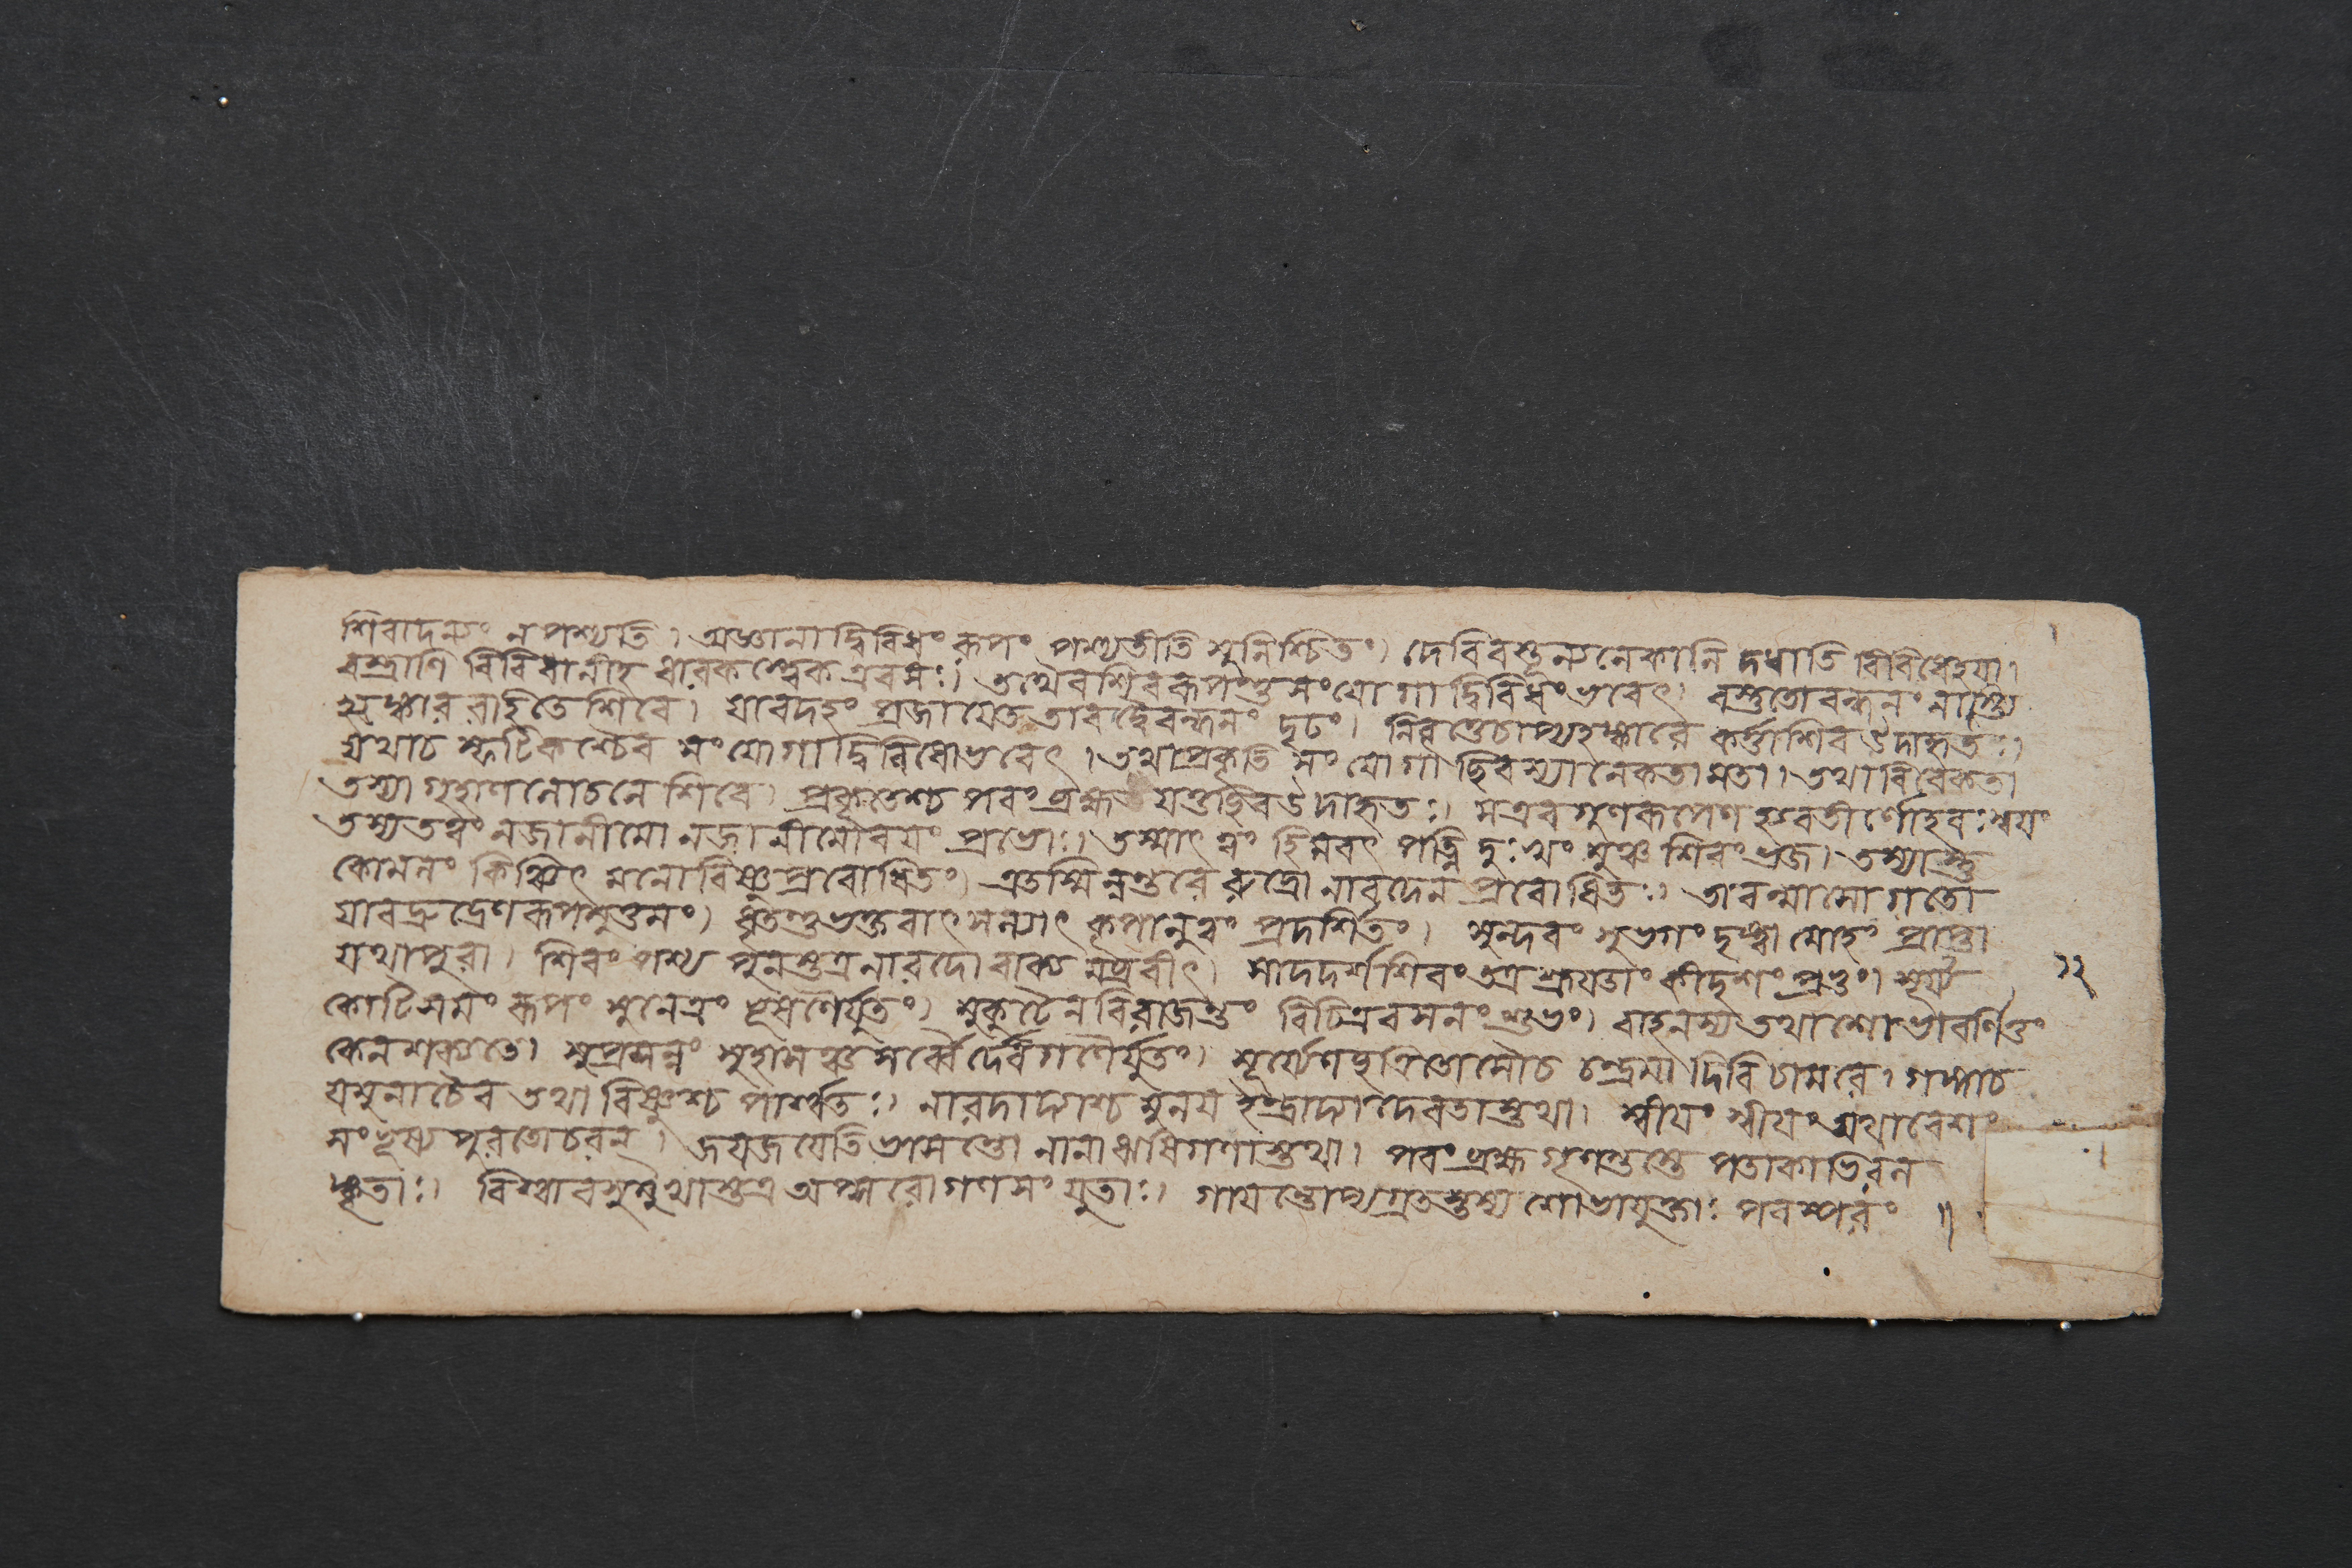 শিবাদন্যং নপশ্যতি। অজ্ঞানাদ্বিবিধং রূপং পশ্যতীতি সুনিশ্চিতং। দেবি বস্তূন্যনেকানি দধাতি বিবিধেহয়া।
বস্ত্রাণি বিবিধানীহ ধারকস্ত্বেক এবসঃ। তথৈবশিবরূপস্তু সংযোগাদ্বিবিধং ভবেৎ। বস্তুতো বন্ধনং নাস্ত্যি
হঙ্কার রহিতে শিবে। যাবদহং প্রজায়েত তাবদ্বৈবন্ধনং দৃঢং। নিবৃত্তেচাপ্যহঙ্কারে কর্ত্তাশিব উদাহৃতঃ।
যথাচ স্ফটিকশ্চৈব সংযোগাদ্বিবিধোভবেৎ। তথাপ্রকৃতি সংযোগাচ্ছিবস্যানেকতামতা। তথাবিবেকতা
তস্যা গৃহাণলোচনে শিবে। প্রকৃতেশ্চ পরং ব্রহ্ম যত্তচ্ছিব উদাহৃতঃ। সএব গুণরূপেণ হ্যবতীর্ণোহরঃ স্বয়ং
তস্যতত্বং নজানীমো নজানীমোবয়ং প্রভোঃ। তস্মাৎ ত্বং হিমবৎ পত্নি দুঃখং মুঞ্চ শিবং ভজ। তস্যাস্তু
কোমলং কিঞ্চিৎ মনোবিষ্ণুপ্রবোধিতং। এতস্মিন্নন্তরে রুদ্রো নারদেন প্রবোধিতঃ। তাবন্মাসোগতো
যাবদ্রুদ্রেণরূপমুত্তমং। ধৃতন্তুভক্তবাৎসল্যাৎ কৃপালুত্বং প্রদর্শিতং। সুন্দরং সুভগং দৃষ্ট্বা মোহং প্রাপ্তা
যথাপুরা। শিবং পশ্য পুনস্তত্র নারদো বাক্যমব্রবীৎ। সাদদর্শ শিবং তত্র শ্রূয়তাং কীদৃশং প্রভুং। সূর্য্য
১২
কোটিসমং রূপং সুনেত্রং ভূষণৈর্যুতং। মুকুটেন বিরাজন্তং বিচিত্রবসনং শুভং। বাহনস্য তথাশোভাবর্ণিতুং
কেনশক্যতে। সুপ্রসন্নং সুহাসঞ্চ সর্ব্বৈর্দেবগণৈর্যুতং। সূর্য্যেণছত্রিতোসৌচ চন্দ্রমা দিবিচামরে। গঙ্গাচ
যমুনাচৈব তথা বিষ্ণুশ্চ পার্শ্বতঃ। নারদাদ্যাশ্চ মুনয় ইন্দ্রাদ্যা দেবতাস্তথা। স্বীয়ং স্বীয়ং যথাবেশং
সংভূষ্য পুরতোচরন্। জয়জয়েতি ভাষন্তো নানা ঋষিগণাস্তথা। পরং ব্রহ্ম গৃণন্তস্তে পতাকাভিরল
ঙ্কৃতাঃ। বিশ্বাবসুমুখাস্তত্র অপ্সরোগণসংযুতাঃ। গায়ন্তোপ্যগ্রতস্তস্য শোভাযুক্তাঃ পরস্পরং॥